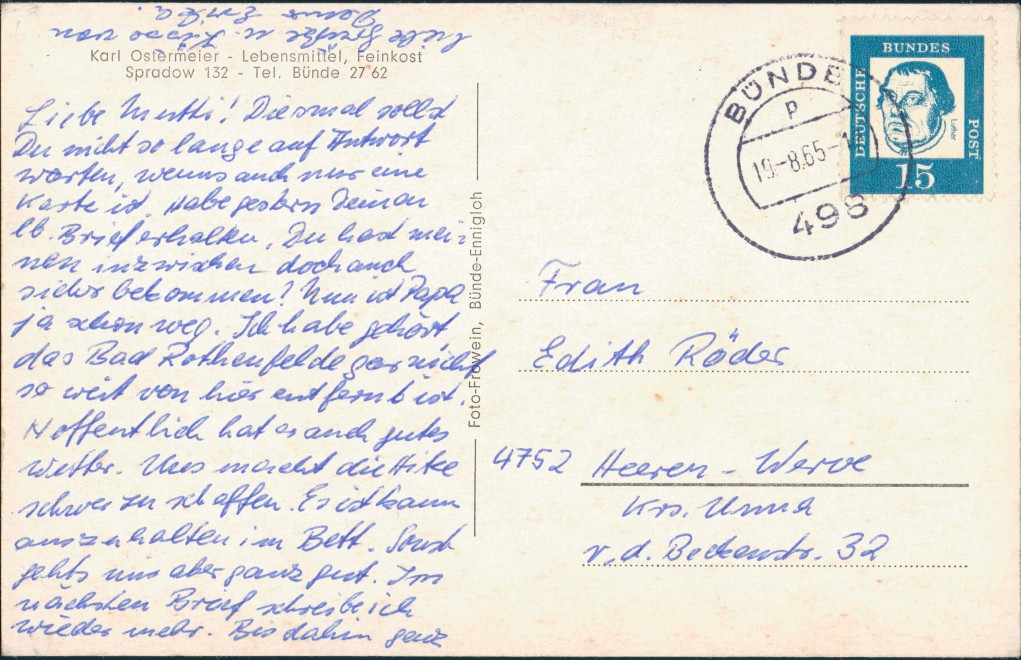 Karl Ostermeier - Lebensmittel, Feinkost
Spradow 132 - Tel. Bünde 27 62
Liebe Mutti! Diesmal sollst
Du nicht so lange auf Antwort
warten, wenns auch nur eine
Karte ist. Habe gestern Deinen
lb. Brief erhalten, Du hast mei-
nen inzwischen doch auch
sicher bekommen? Nun ist Papa
ja schon weg. Ich habe gehört,
das Bad Rothenfelde gar nicht
so weit von hier entfernt ist.
Hoffentlich hat er auch gutes
Wetter. Uns macht die Hitze
schwer zu schaffen. Es ist kaum
auszuhalten im Bett. Sonst
gehts uns aber ganz gut. Im
nächsten Brief schreibe ich
wieder mehr. Bis dahin ganz
liebe Grüße u. Küsse von
Deiner Erika.
Foto-Frowein, Bünde-Ennigloh
BÜNDE
P
19.-8.65-1
498
DEUTSCHE
BUNDES
POST
Luther
15
Frau
Edith Röder
4752 Heeren-Werve
Krs. Unna
v. d. Beckenstr. 32